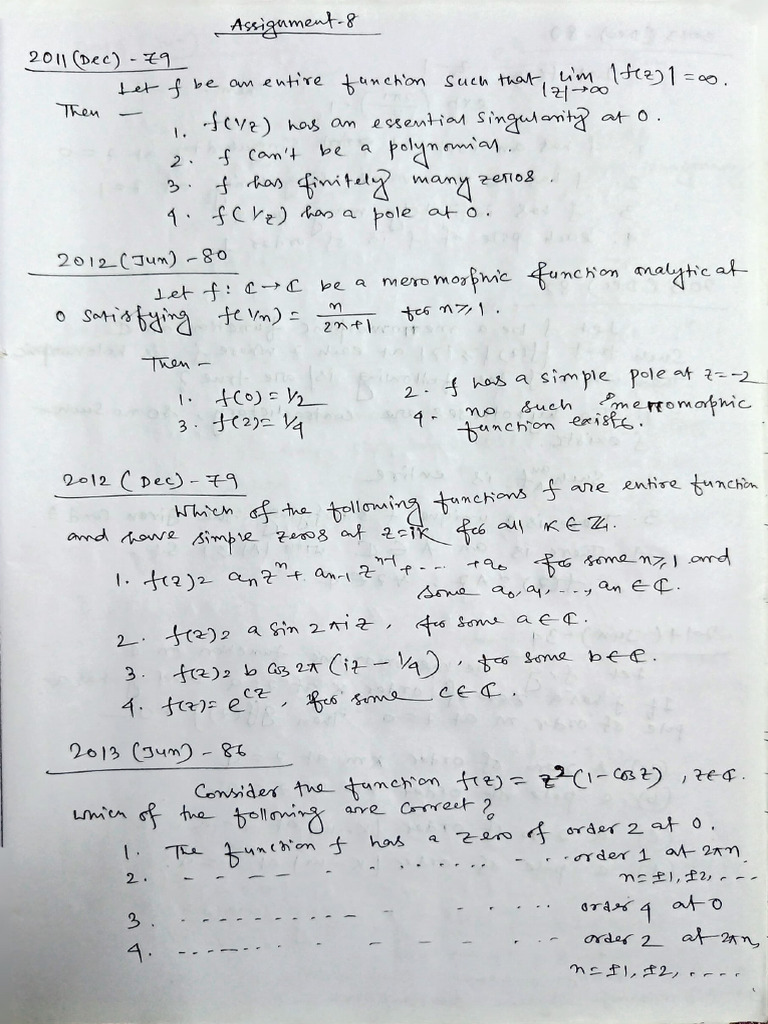 Assignment-8
2011 (Dec) - 79
Let f be an entire function such that lim |z|→∞ |f(z)| = ∞.
Then —
1. f(1/z) has an essential singularity at 0.
2. f can't be a polynomial.
3. f has finitely many zeros.
4. f(1/z) has a pole at 0.
2012 (Jun) - 80
Let f: ℂ → ℂ be a meromorphic function analytic at
0 satisfying f(1/n) = n/(2n+1) for n ≥ 1.
Then —
1. f(0) = 1/2 2. f has a simple pole at z = -2
3. f(2) = 1/4 4. no such meromorphic
function exists.
2012 (Dec) - 79
Which of the following functions f are entire function
and have simple zeros at z = ik for all k ∈ ℤ.
1. f(z) = aₙzⁿ + aₙ₋₁zⁿ⁻¹ + ... + a₀ for some n ≥ 1 and
some a₀, a₁, ..., aₙ ∈ ℂ.
2. f(z) = a sin 2πiz, for some a ∈ ℂ.
3. f(z) = b cos 2π (iz - 1/4), for some b ∈ ℂ.
4. f(z) = e^{cz}, for some c ∈ ℂ.
2013 (Jun) - 86
Consider the function f(z) = z²(1 - cos z), z ∈ ℂ.
which of the following are correct?
1. The function f has a zero of order 2 at 0.
2. - - - - - ........ order 1 at 2πn,
n = ±1, ±2, ----
3. - - - - - - - - - .... order 4 at 0
4. - - - - - - - - - ... order 2 at 2πn,
n = ±1, ±2, ....